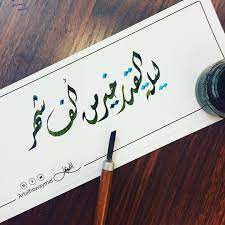 ليلة القدر خير من ألف شهر
Artalhowaymel